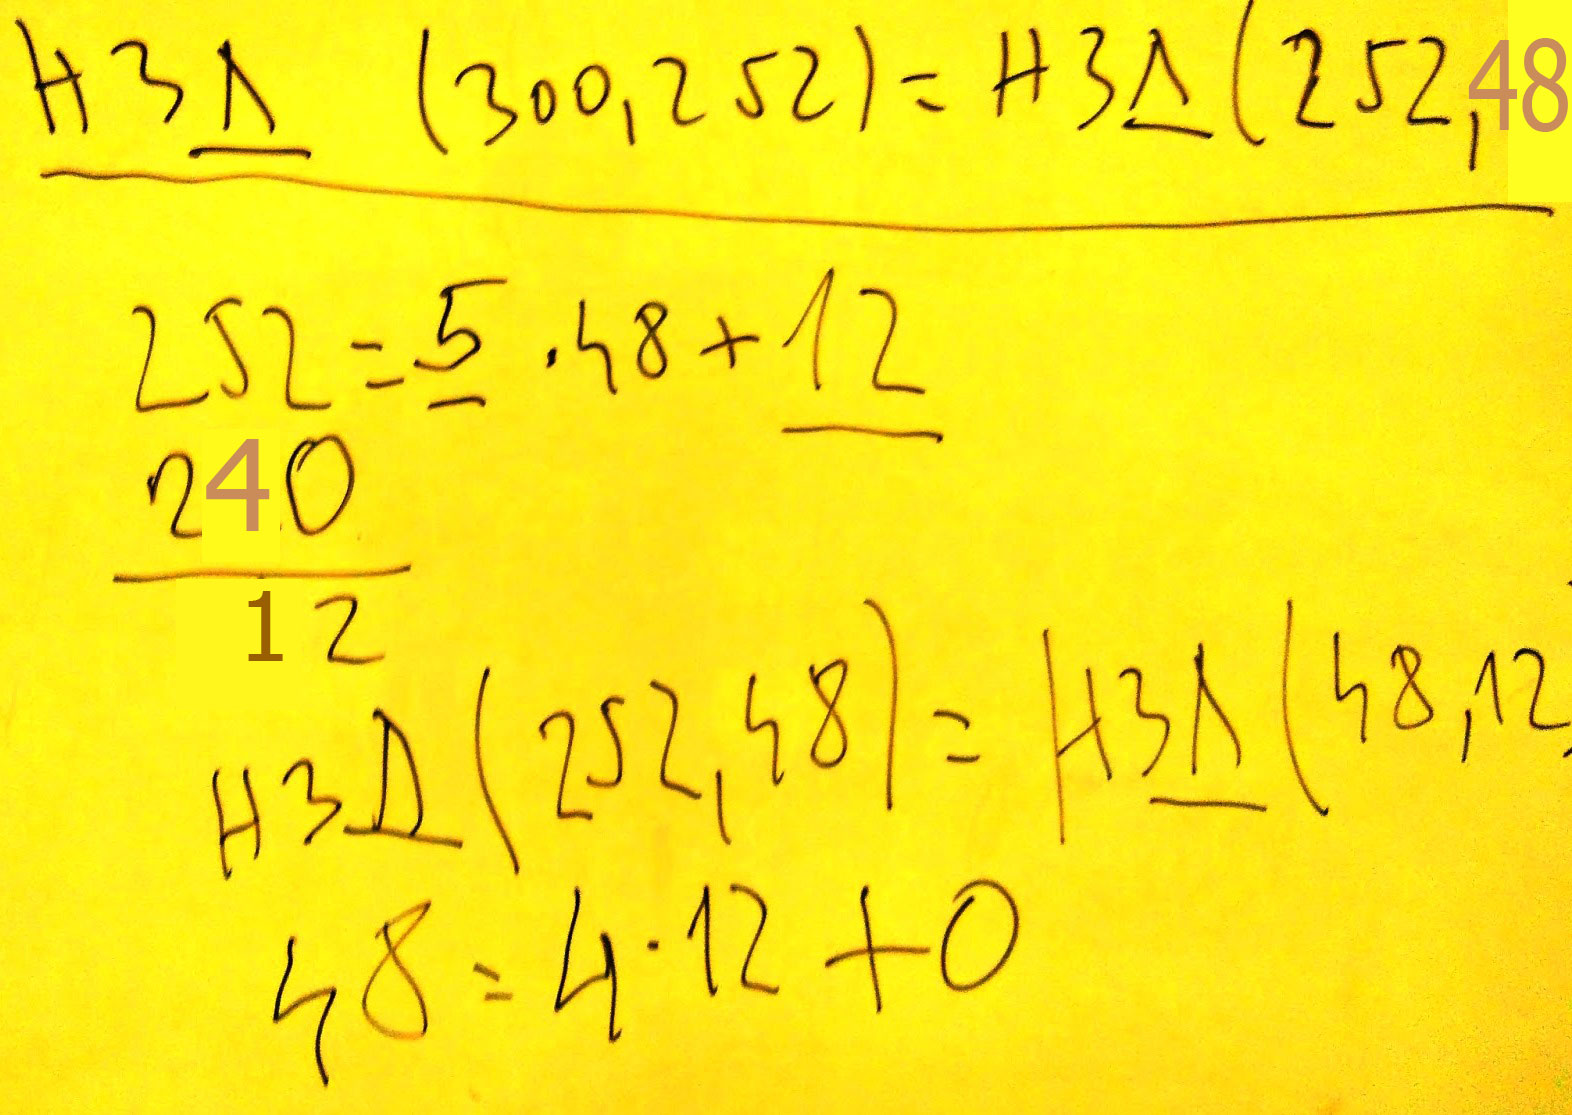 НЗД (300,252)=НЗД(252,48
252=5·48+12
240
12
НЗД(252,48)=НЗД(48,12)
48=4·12+0